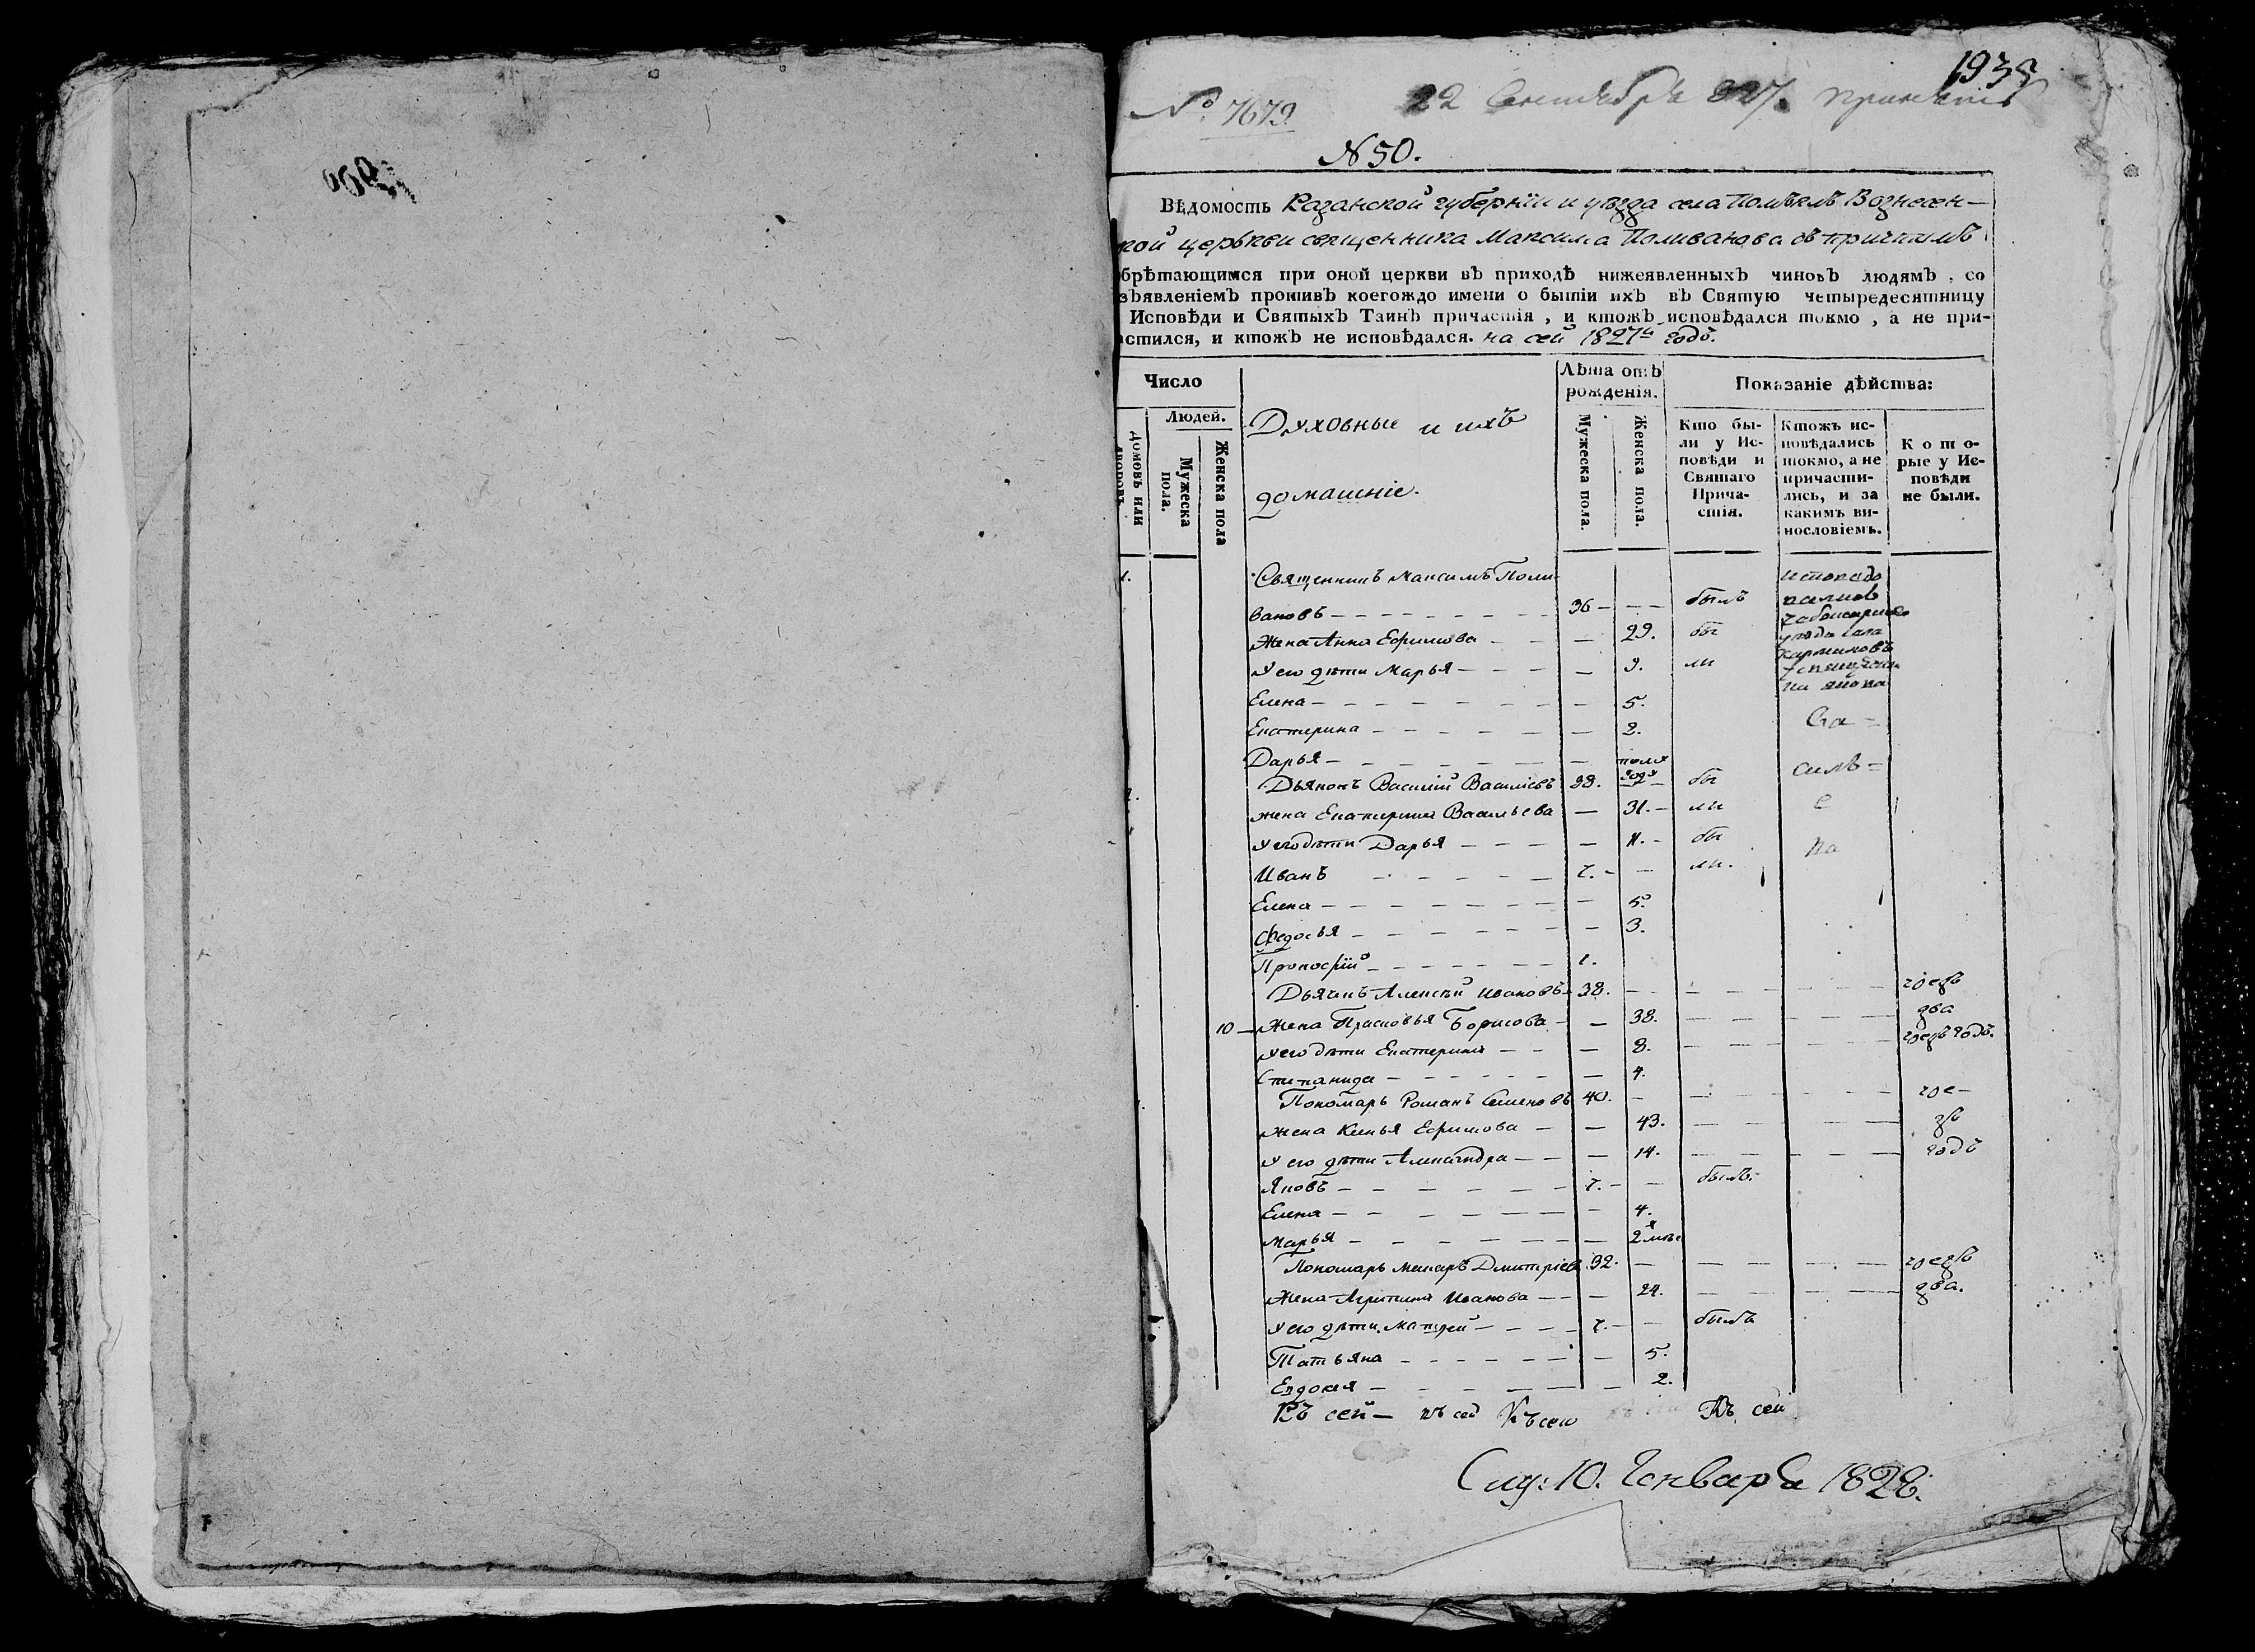 1938
№ 7679. 22 Сентября 827. принятъ
№ 50.
Вѣдомость Казанской губерніи и уѣзда села Помъялъ Вознесен-
кой церькви священника Максима Поливанова съ причтомъ
брѣтающимся при оной церкви въ приходѣ нижеявленныхъ чиновъ людямъ, со
зъявленіемъ противъ коегождо имени о бытіи ихъ въ Святую четыредесятницу
Исповѣди и Святыхъ Таинъ причастія, и ктожъ исповѣдался токмо, а не при-
астился, и ктожъ не исповѣдался. на сей 1827й годъ.
Число
Людей.
Домовъ или дворовъ.
Мужеска пола.
Женска пола
Духовные и ихъ
домашніе.
Лѣта отъ рожденія.
Мужеска пола.
Женска пола.
Показаніе дѣйства:
Кто бы-
ли у Ис-
повѣди и
Святаго
Прича-
стія.
Ктожъ ис-
повѣдались
токмо, а не
причасти-
лись, и за
какимъ ви-
нословіемъ.
Кото-
рые у Ис-
повѣди
не были.
1. Священникъ Максимъ Поли-
вановъ 36 былъ
Жена Анна Ефимова 29. бы
У его дѣти Марья 9. ли
уѣзда села
Елена 5.
Екатерина 2.
Дарья полгода
2. Дьяконъ Василий Василіевъ 38. бы
жена Екатерина Васильева 31. ли
У его дѣти Дарья 11. бы
Иванъ 7. ли.
Елена 5.
Федосья 3.
Прокофій 1.
Дьячекъ Алексѣй Ивановъ 38. чрезъ
10 Жена Прасковья Борисова 38. два
У его дѣти Екатерина 8. чрезъ годъ.
Степанида 4.
Пономарь Романъ Семеновъ 40. чре-
жена Ксенья Ефимова 43. зъ
У его дѣти Александра 14. годъ
Яковъ 7. былъ.
Елена 4.
Марья 2 мѣс
Пономарь Макаръ Дмитріевъ 32. чрезъ
Жена Агрипина Иванова 24. два.
У его дѣти. Матфей 7. былъ
Татьяна 5.
Евдокея 2.
Къ сей къ сей Къ сей Къ сей
Слу: 10. Генваря 1828.